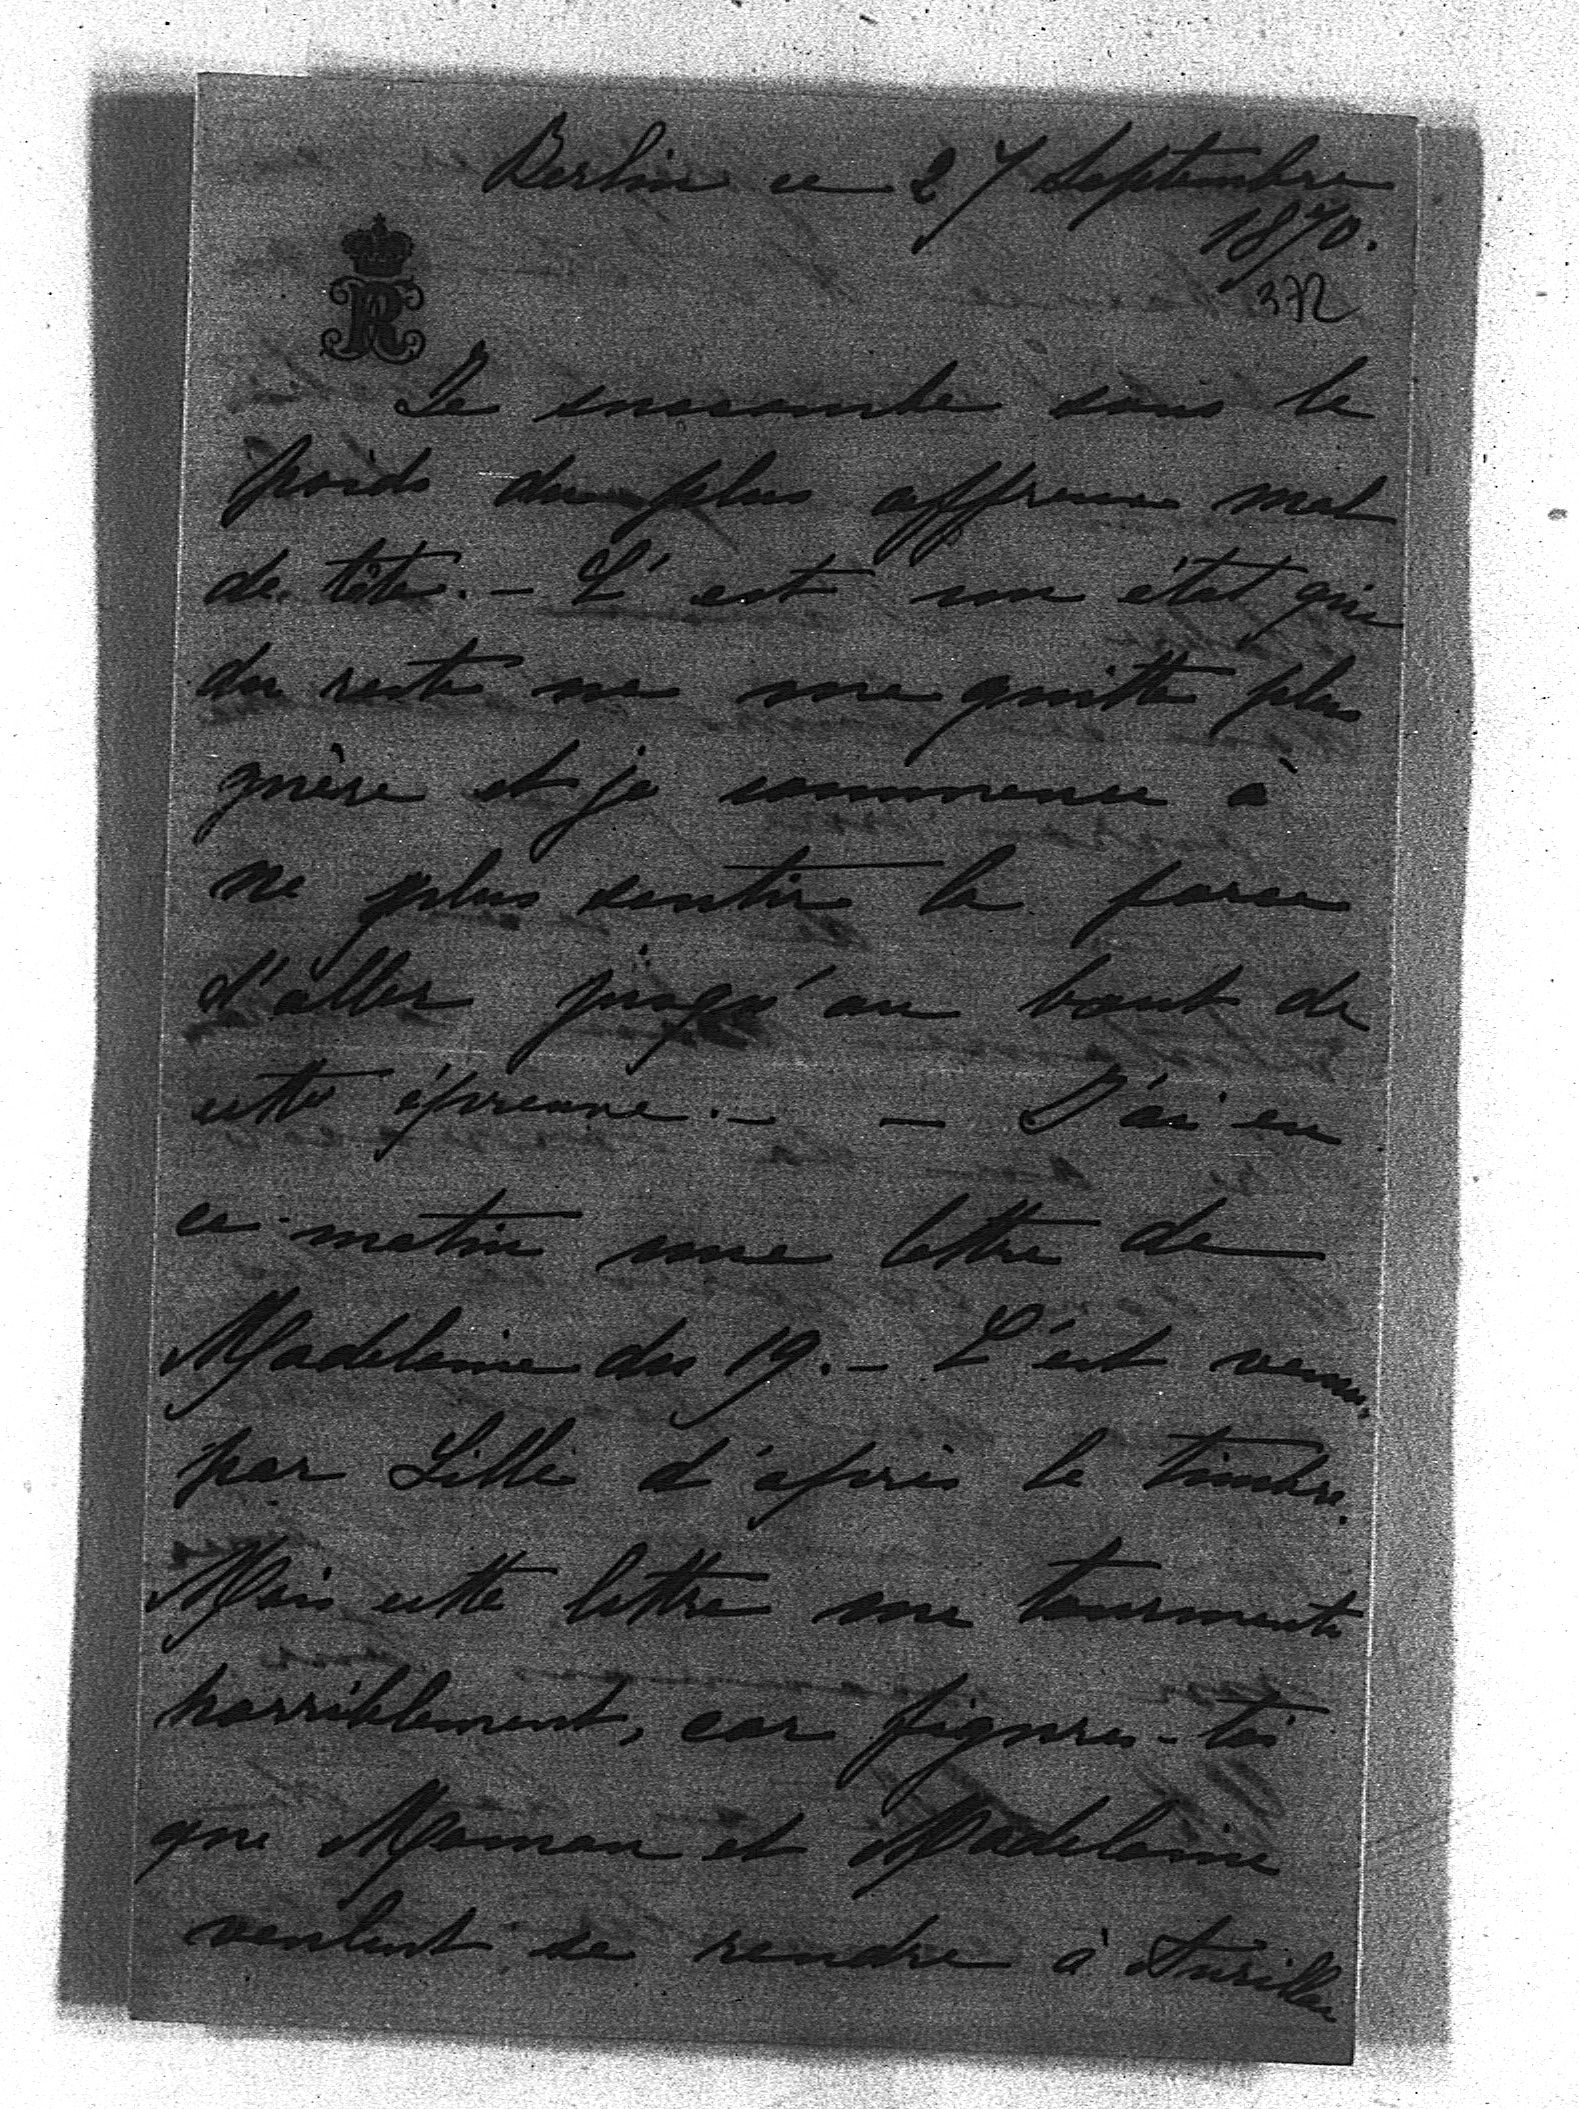 Berlin ce 27 Septembre
1870.
372
R
Je succombe sous le
poids du plus affreux mal
de tête. - C'est un état qui
du reste ne me quitte plus
guère et je commence à
ne plus sentir la force
d'aller jusqu'au bout de
cette épreuve. - - J'ai eu
ce matin une lettre de
Madeleine du 19. - C'est venu
par Lille d'après le timbre.
Mais cette lettre me tourmente
horriblement, car figures-toi
que Maman et Madeleine
veulent se rendre à